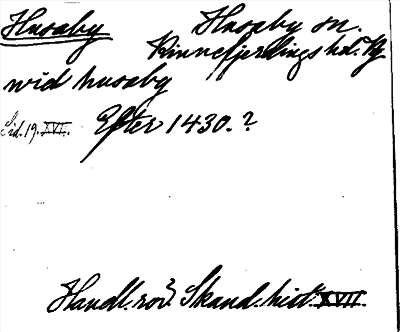 Husaby Husaby sn.
Kinnefjerdings hd. Vg
wid husaby
Sid. 19. XVI. Efter 1430.?
Handl. rör. Skand. hist. XVII.